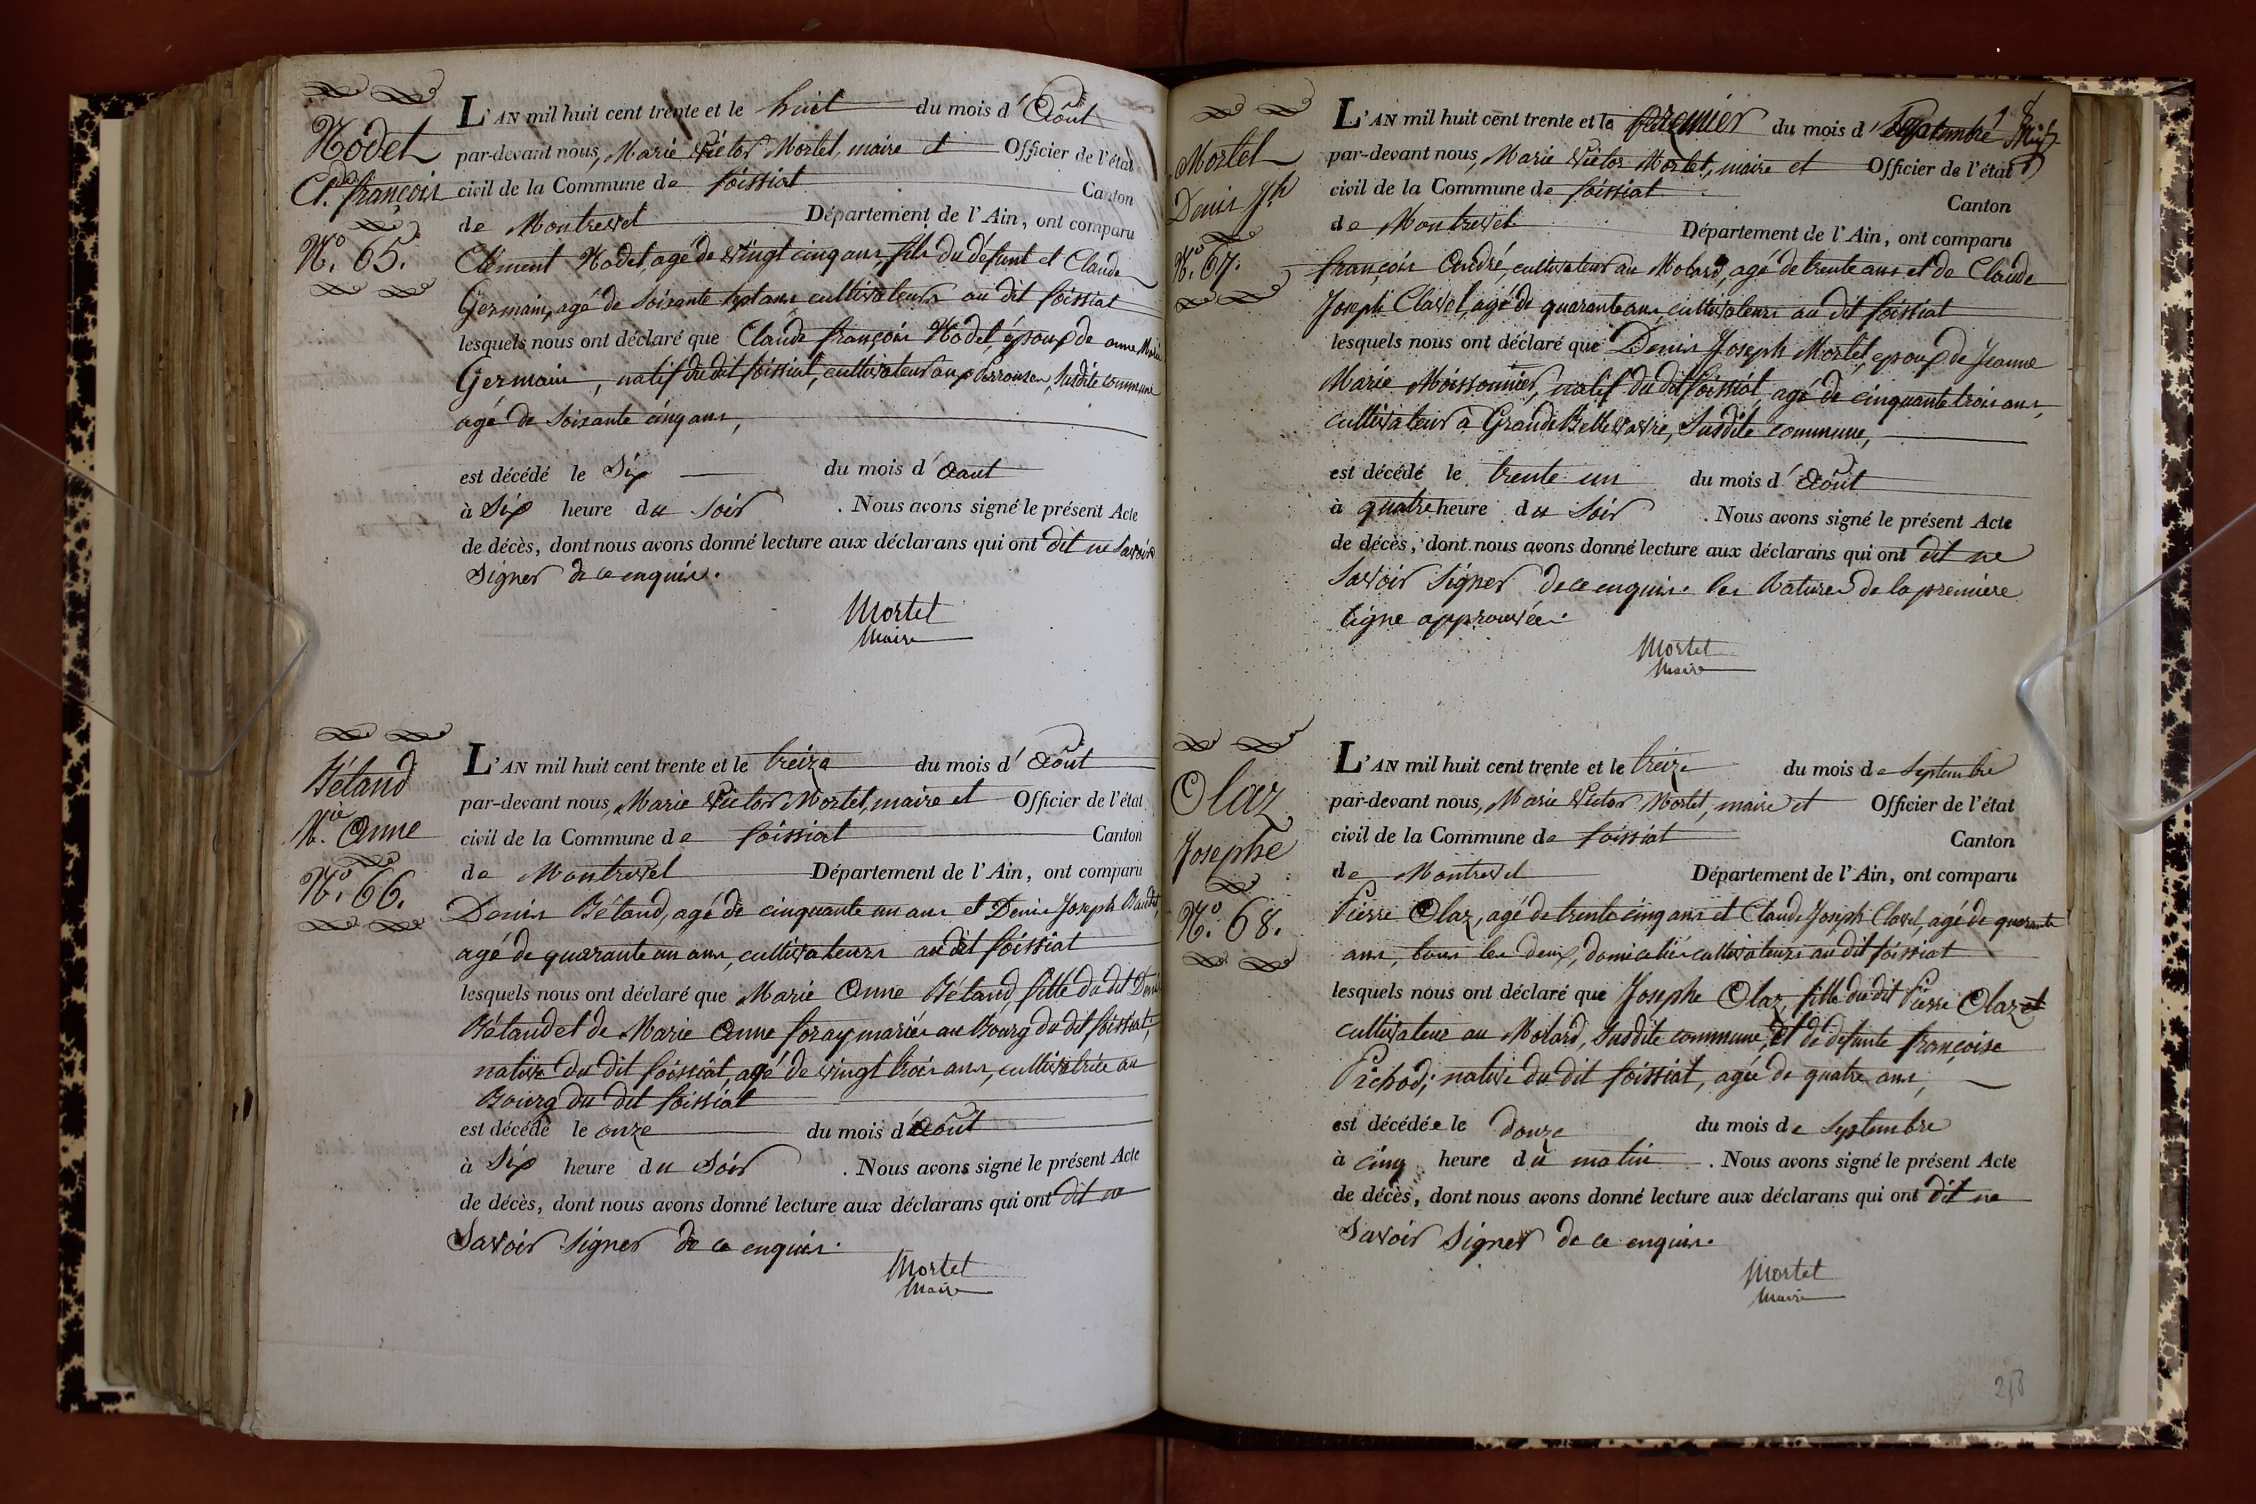 Nodet
Cl. françois
N.o 65.
L'AN mil huit cent trente et le huit du mois d'Août
par-devant nous, Marie Victor Mortel, maire et Officier de l'état
civil de la Commune de foissiat Canton
de Montrevel Département de l'Ain, ont comparu
Clément Nodet, agé de vingt cinq ans, fils du défunt et Claude
Germain, agé de soixante sept ans cultivateurs au dit foissiat
lesquels nous ont déclaré que Claude françois Nodet, époux de anne Marie
Germain, natif du dit foissiat, cultivateur aux susdite commune
agé de soixante cinq ans,
est décédé le Six du mois d'Aout
à Six heure du Soir . Nous avons signé le présent Acte
de décès, dont nous avons donné lecture aux déclarans qui ont dit ne savoir
signer de ce enquis.
Mortel
Maire
Bétaud
M.ie Anne
N.o 66.
L'AN mil huit cent trente et le treize du mois d'Août
par-devant nous, Marie Victor Mortel, maire et Officier de l'état
civil de la Commune de foissiat Canton
de Montrevel Département de l'Ain, ont comparu
Denis Bétaud, agé de cinquante un ans et Denis Joseph
agé de quarante un ans, cultivateurs au dit foissiat
lesquels nous ont déclaré que Marie Anne Bétaud fille du dit Denis
Bétaud et de Marie Anne foray mariés au Bourg du dit foissiat,
native du dit foissiat, agé de vingt trois ans, cultivatrice au
Bourg du dit foissiat
est décédé le onze du mois d'Août
à Six heure du Soir . Nous avons signé le présent Acte
de décès, dont nous avons donné lecture aux déclarans qui ont dit ne
Savoir Signer de ce enquis.
Mortel
Maire
Mortel
Denis Jph
N.o 67.
L'AN mil huit cent trente et le premier du mois d Septembre
par-devant nous, Marie Victor Mortel, maire et Officier de l'état
civil de la Commune de foissiat Canton
de Montrevel Département de l'Ain, ont comparu
françois André, cultivateur au Molard, agé de trente ans et de Claude
Joseph Clavel, agé de quarante ans, cultivateurs au dit foissiat
lesquels nous ont déclaré que Denis Joseph Mortel, epoux de Jeanne
Marie Moissonnier, natif du dit foissiat, agé de cinquante trois ans,
cultivateur à Grande Bellevavre, susdite commune,
est décédé le trente un du mois d'Août
à quatre heure du Soir . Nous avons signé le présent Acte
de décès, dont nous avons donné lecture aux déclarans qui ont dit ne
Savoir Signer de ce enquis. les Ratures de la première
ligne approuvée.
Mortel
Maire
Olaz
Josephe
N.o 68.
L'AN mil huit cent trente et le treize du mois de Septembre
par-devant nous, Marie Victor Mortel, maire et Officier de l'état
civil de la Commune de foissiat Canton
de Montrevel Département de l'Ain, ont comparu
Pierre Olaz, agé de trente cinq ans et Claude Joseph Clavel, agé de quarante
ans, tous les deux, domiciliés cultivateurs au dit foissiat
lesquels nous ont déclaré que Josephe Olaz, fille du dit Pierre Olaz et
cultivateur au Molard, susdite commune, et de défunte françoise
Pichod, native du dit foissiat, agée de quatre ans,
est décédée le douze du mois de Septembre
à cinq heure du matin . Nous avons signé le présent Acte
de décès, dont nous avons donné lecture aux déclarans qui ont dit ne
Savoir Signer de ce enquis.
Mortel
Maire